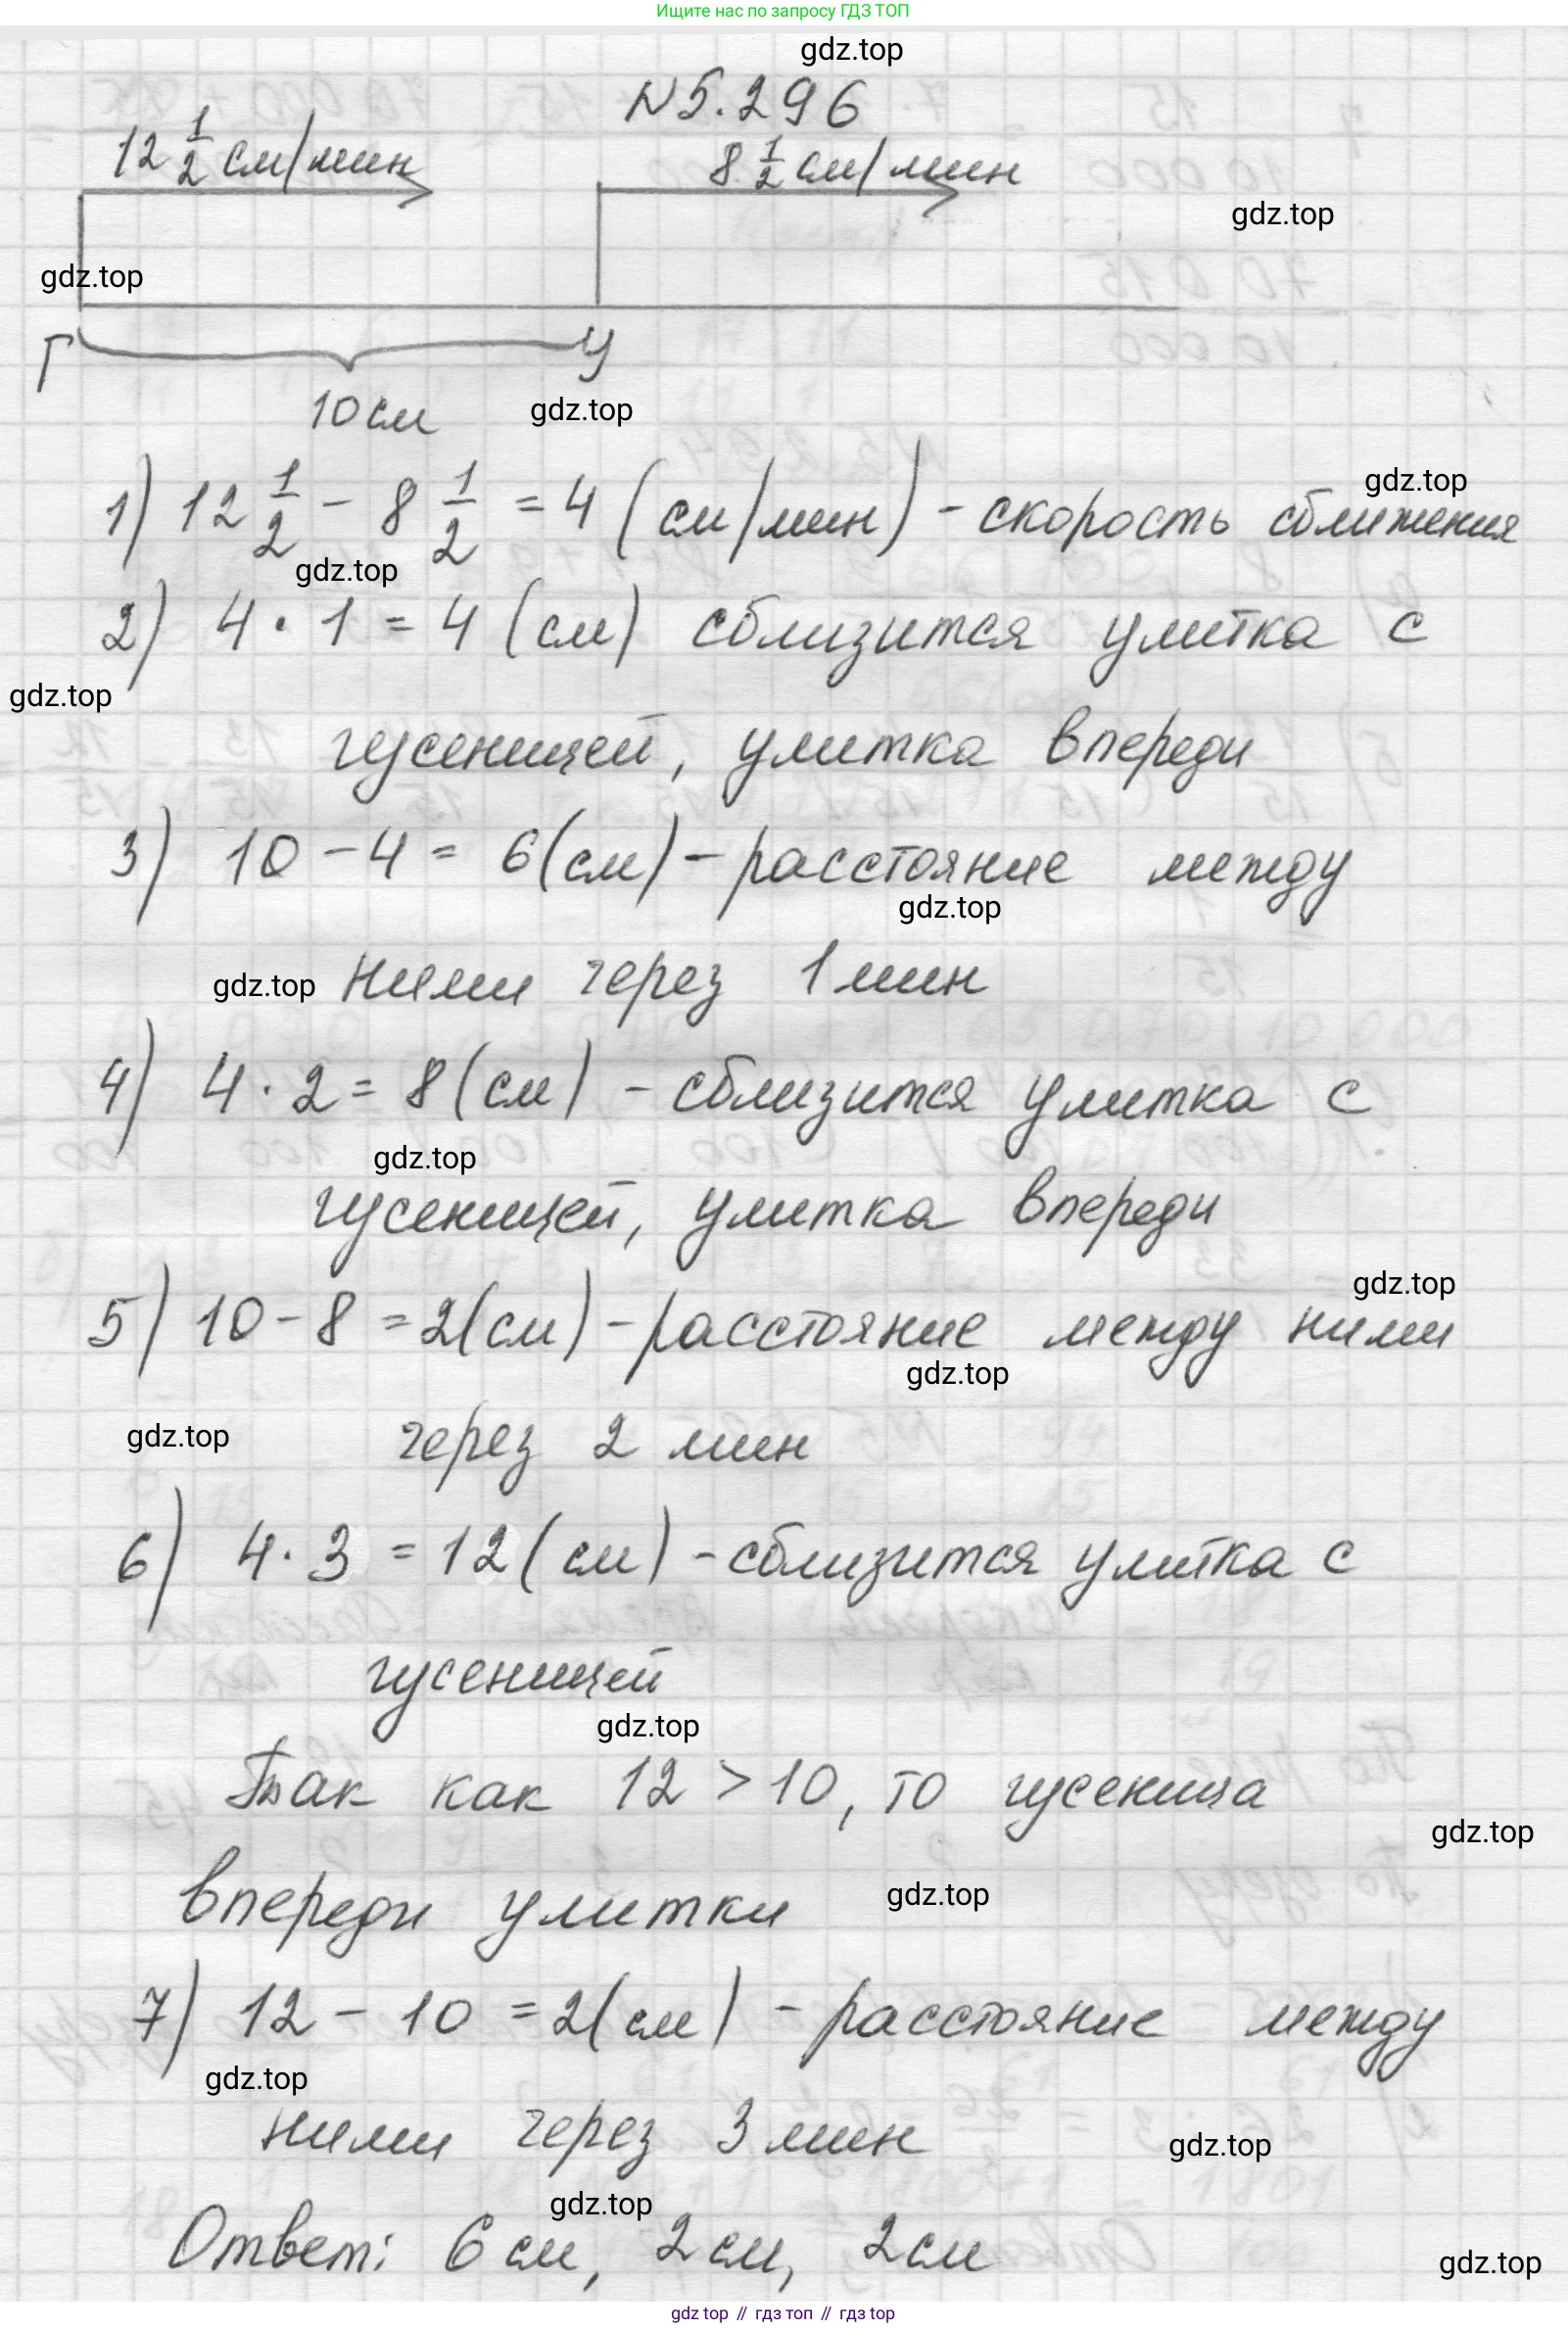 Ищите нас по запросу ГДЗ ТОП
gdz.top
№5.296
12 1/2 см/мин
8 1/2 см/мин
gdz.top
gdz.top
Г
У
10 см
gdz.top
gdz.top
1) 12 1/2 - 8 1/2 = 4 (см/мин) - скорость сближения
gdz.top
2) 4 · 1 = 4 (см) сблизится улитка с
gdz.top
гусеницей, улитка впереди
3) 10 - 4 = 6 (см) - расстояние между
gdz.top
gdz.top
ними через 1 мин
4) 4 · 2 = 8 (см) - сблизится улитка с
gdz.top
гусеницей, улитка впереди
gdz.top
5) 10 - 8 = 2 (см) - расстояние между ними
gdz.top
gdz.top
через 2 мин
6) 4 · 3 = 12 (см) - сблизится улитка с
гусеницей
gdz.top
Так как 12 > 10, то гусеница
gdz.top
впереди улитки
gdz.top
7) 12 - 10 = 2 (см) - расстояние между
gdz.top
ними через 3 мин
gdz.top
gdz.top
Ответ: 6 см, 2 см, 2 см
gdz.top
gdz.top // гдз топ // гдз top